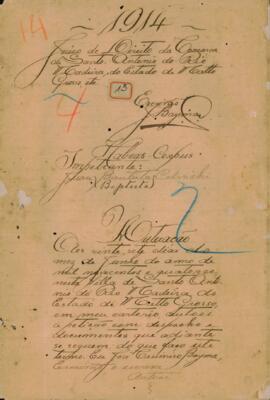 14
1914
Juizo de Direito da Comarca
de Santo Antonio do Rio
Madeira, do Estado de Matto
Grosso, etc.
13
4
Escrivão
Habeas-Corpus
Impetrante:
João Baptista
(Baptista)
2
Autuação
Aos vinte sete dias do
mez de Junho do anno de
mil novecentos e quatorze,
nesta Villa de Santo Anto-
nio do Rio Madeira do
Estado de Matto Grosso,
em meu cartorio, autuei
a petição com despacho e
documentos que adiante
se seguem, do que faço este
termo. Eu
escrivão o escrevi